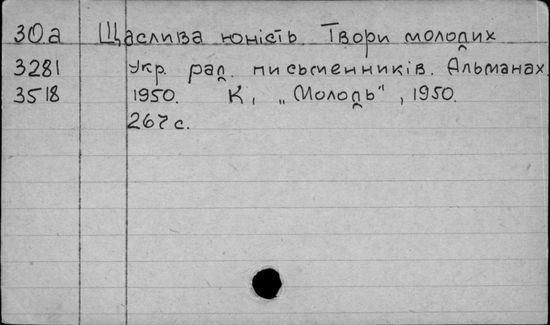 30.а Щаслива юність. Твори молодих
3281 Укр. рад. письменників. Альманах.
3518 1950. К., „Молодь", 1950.
267 с.